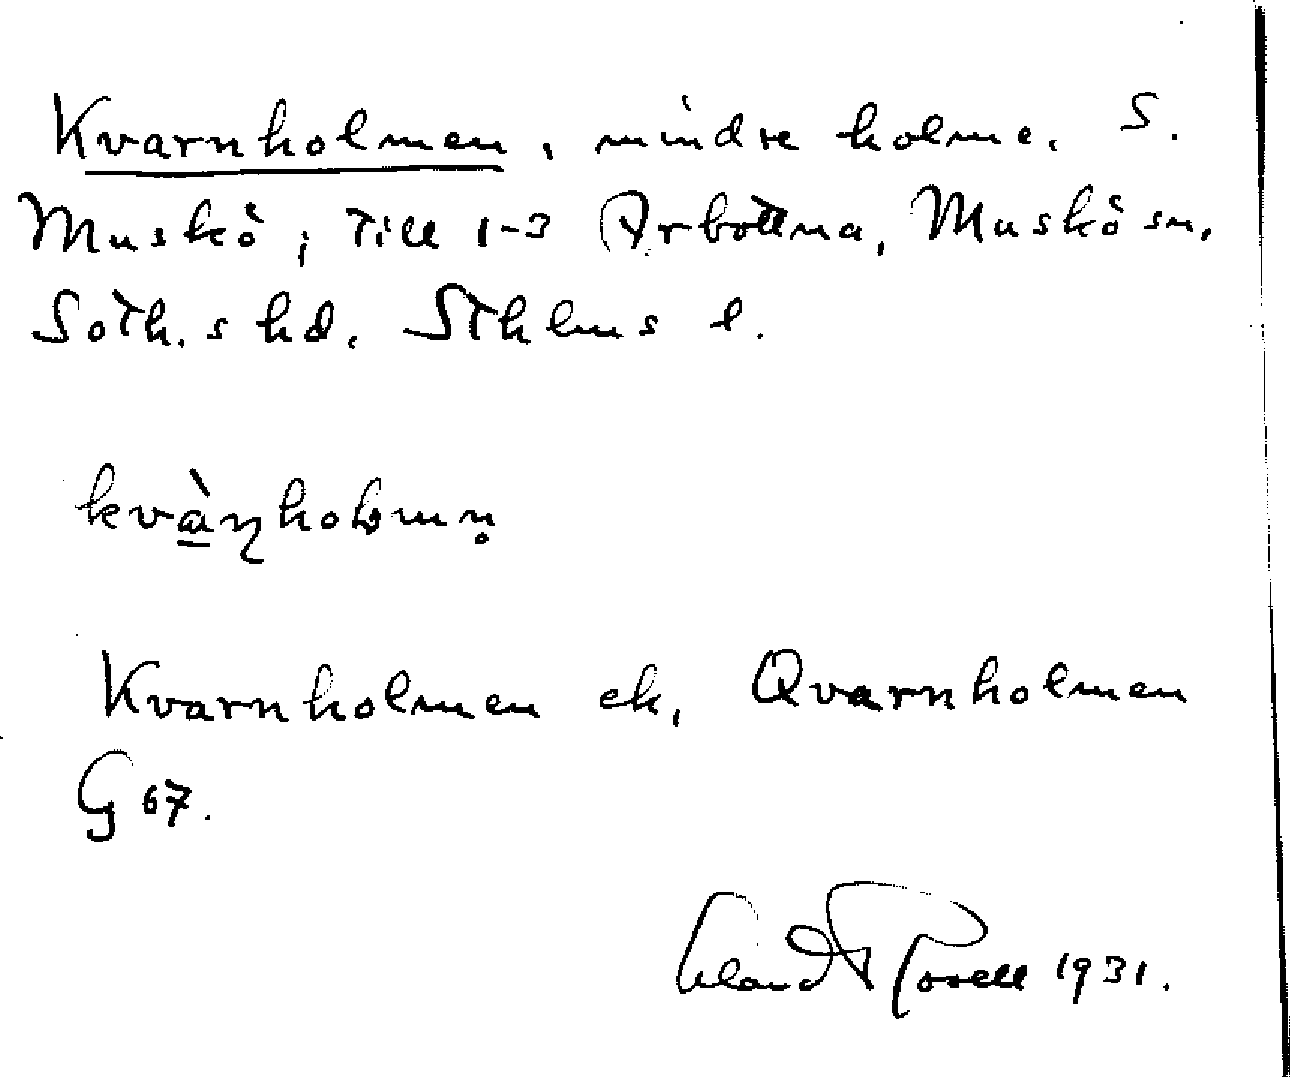 Kvarnholmen, mindre holme. S.
Muskö; till 1-3 Arbottna, Muskö sn,
Soth.s hd. Sthlms l.
kvàɳhoɫmn̥
Kvarnholmen ek, Qvarnholmen
G 67.
1931.